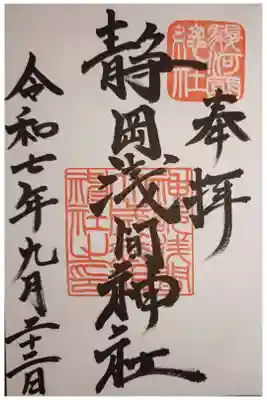 奉拝
駿河國總社
静岡浅間神社
令和七年九月二十三日